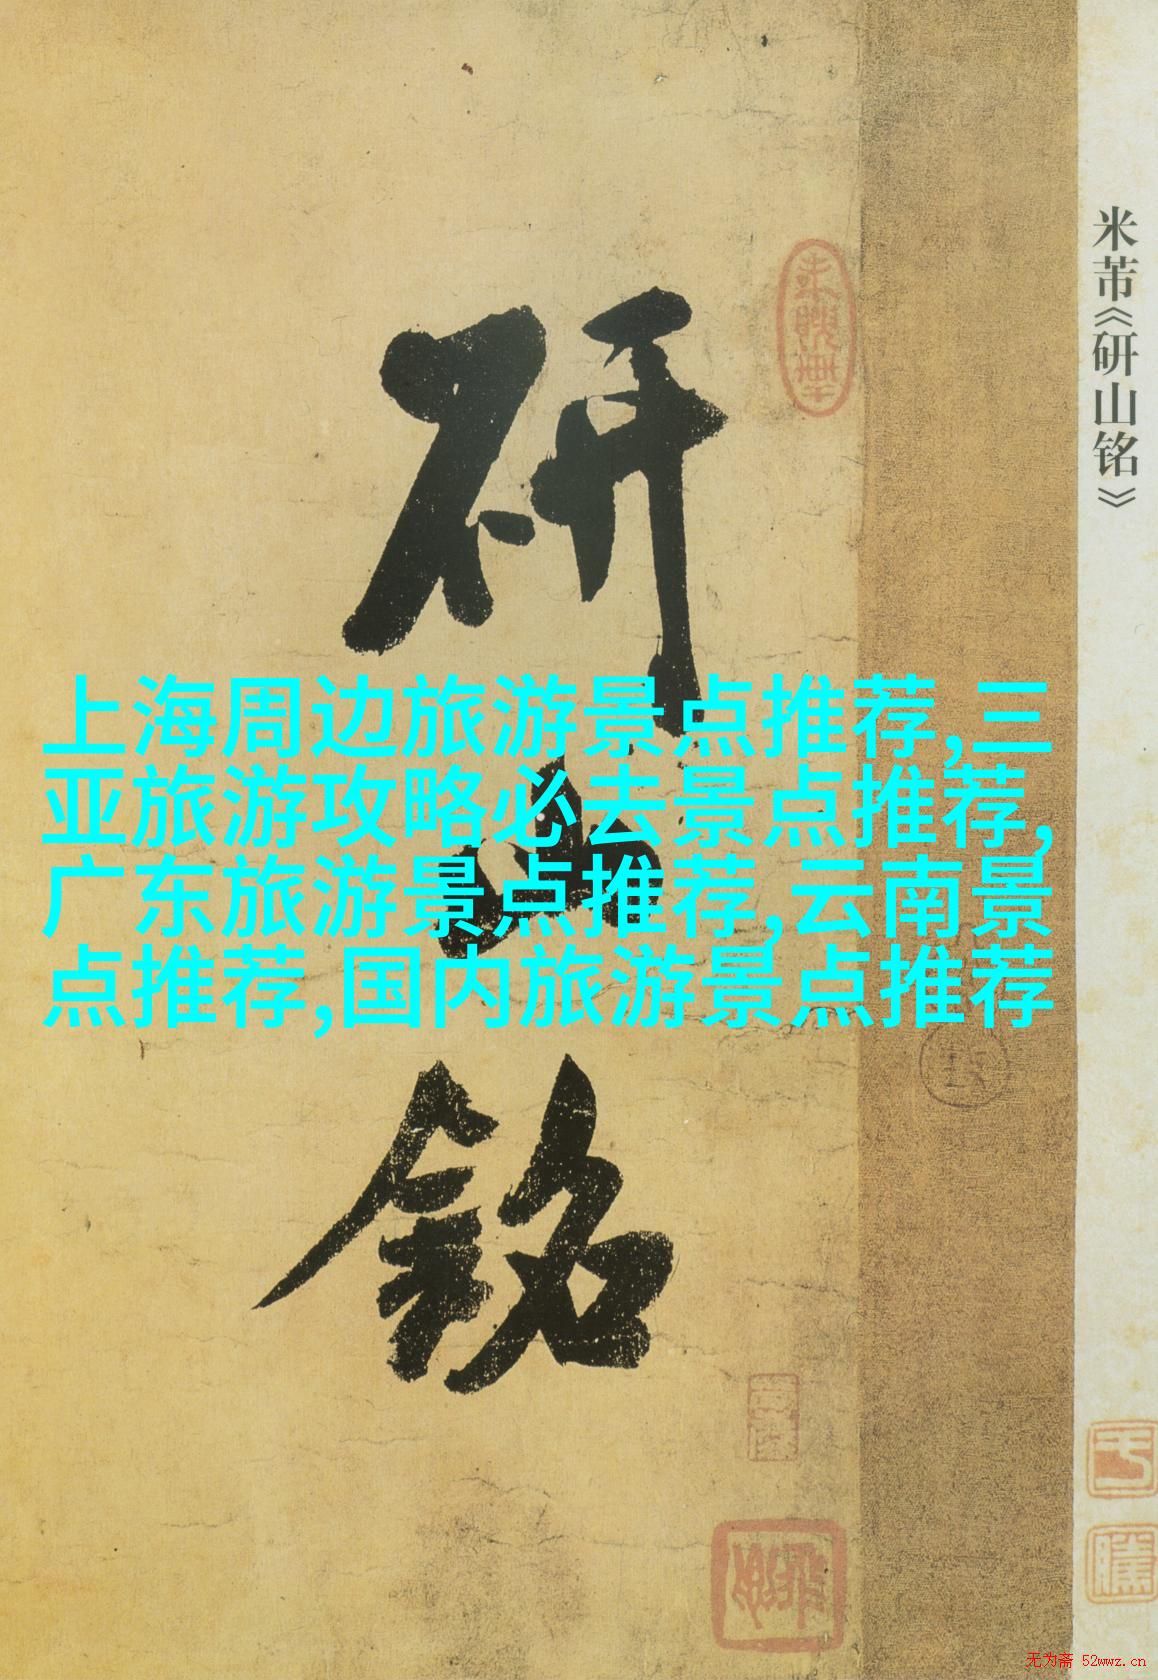 米芾《研山铭》
研山铭
上海周边旅游景点推荐,三
亚旅游攻略必去景点推荐,
广东旅游景点推荐,云南景
点推荐,国内旅游景点推荐
无为斋 52wwz.cn